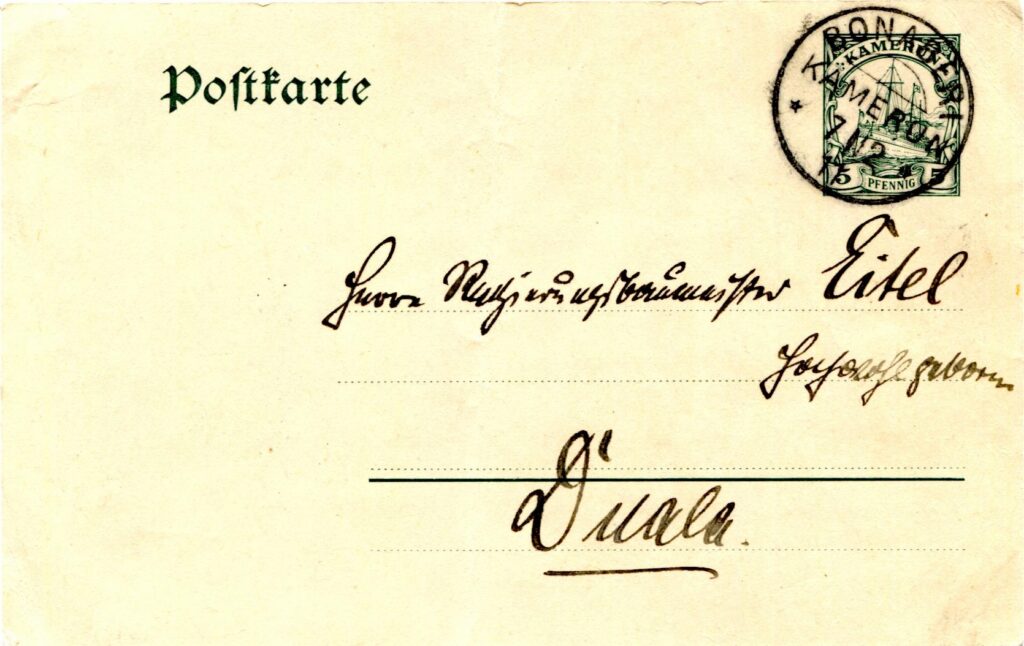 Postkarte
BONABERI
KAMERUN
KAMERUN
5 PFENNIG 5
Herrn Regierungsbaumeister Eitel
Hochwohlgeboren
Duala.